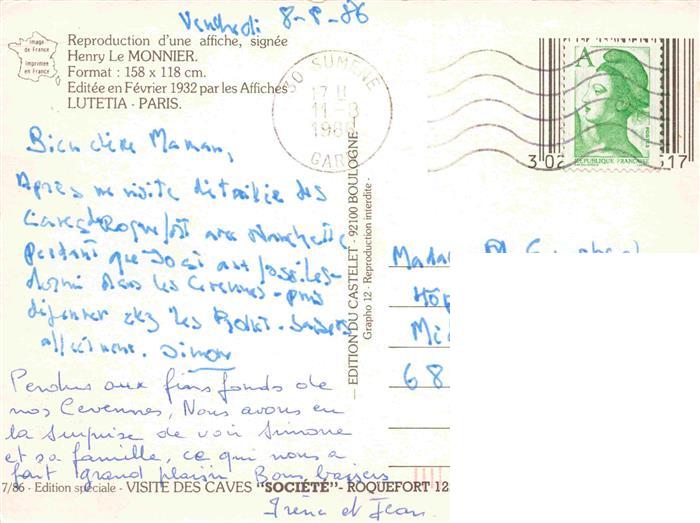 Vendredi 8-8-86
Image de France
Imprimée en France
Reproduction d'une affiche, signée
Henry Le MONNIER.
Format : 158 x 118 cm.
Editée en Février 1932 par les Affiches
LUTETIA - PARIS.
30 SUMENE
17 H
11-8
1986
GARD
A
REPUBLIQUE FRANÇAISE
302
517
Bien chère Maman,
Après une visite détaillée des
Caves de Roquefort avec
pendant que aux fossiles-
dormi dans les Cevennes - puis
déjeuner chez les
Simone
Perdus aux fins fonds de
nos Cevennes, Nous avons eu
la surprise de voir Simone
et sa famille, ce qui nous a
fait grand plaisir Bons baisers
Irène et Jean
— EDITION DU CASTELET - 92100 BOULOGNE
Grapho 12 - Reproduction interdite -
Mada
Hôp
68
7/86 - Edition spéciale - VISITE DES CAVES "SOCIÉTÉ" - ROQUEFORT 12